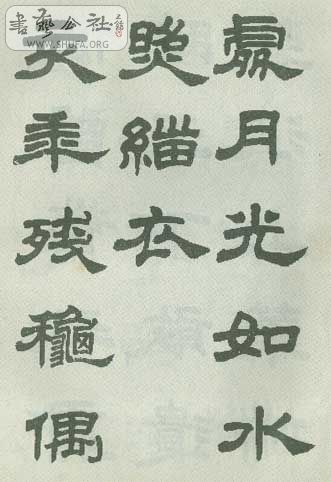 書藝公社
WWW.SHUFA.ORG
處月光如水
照緇衣
亥年残穐偶